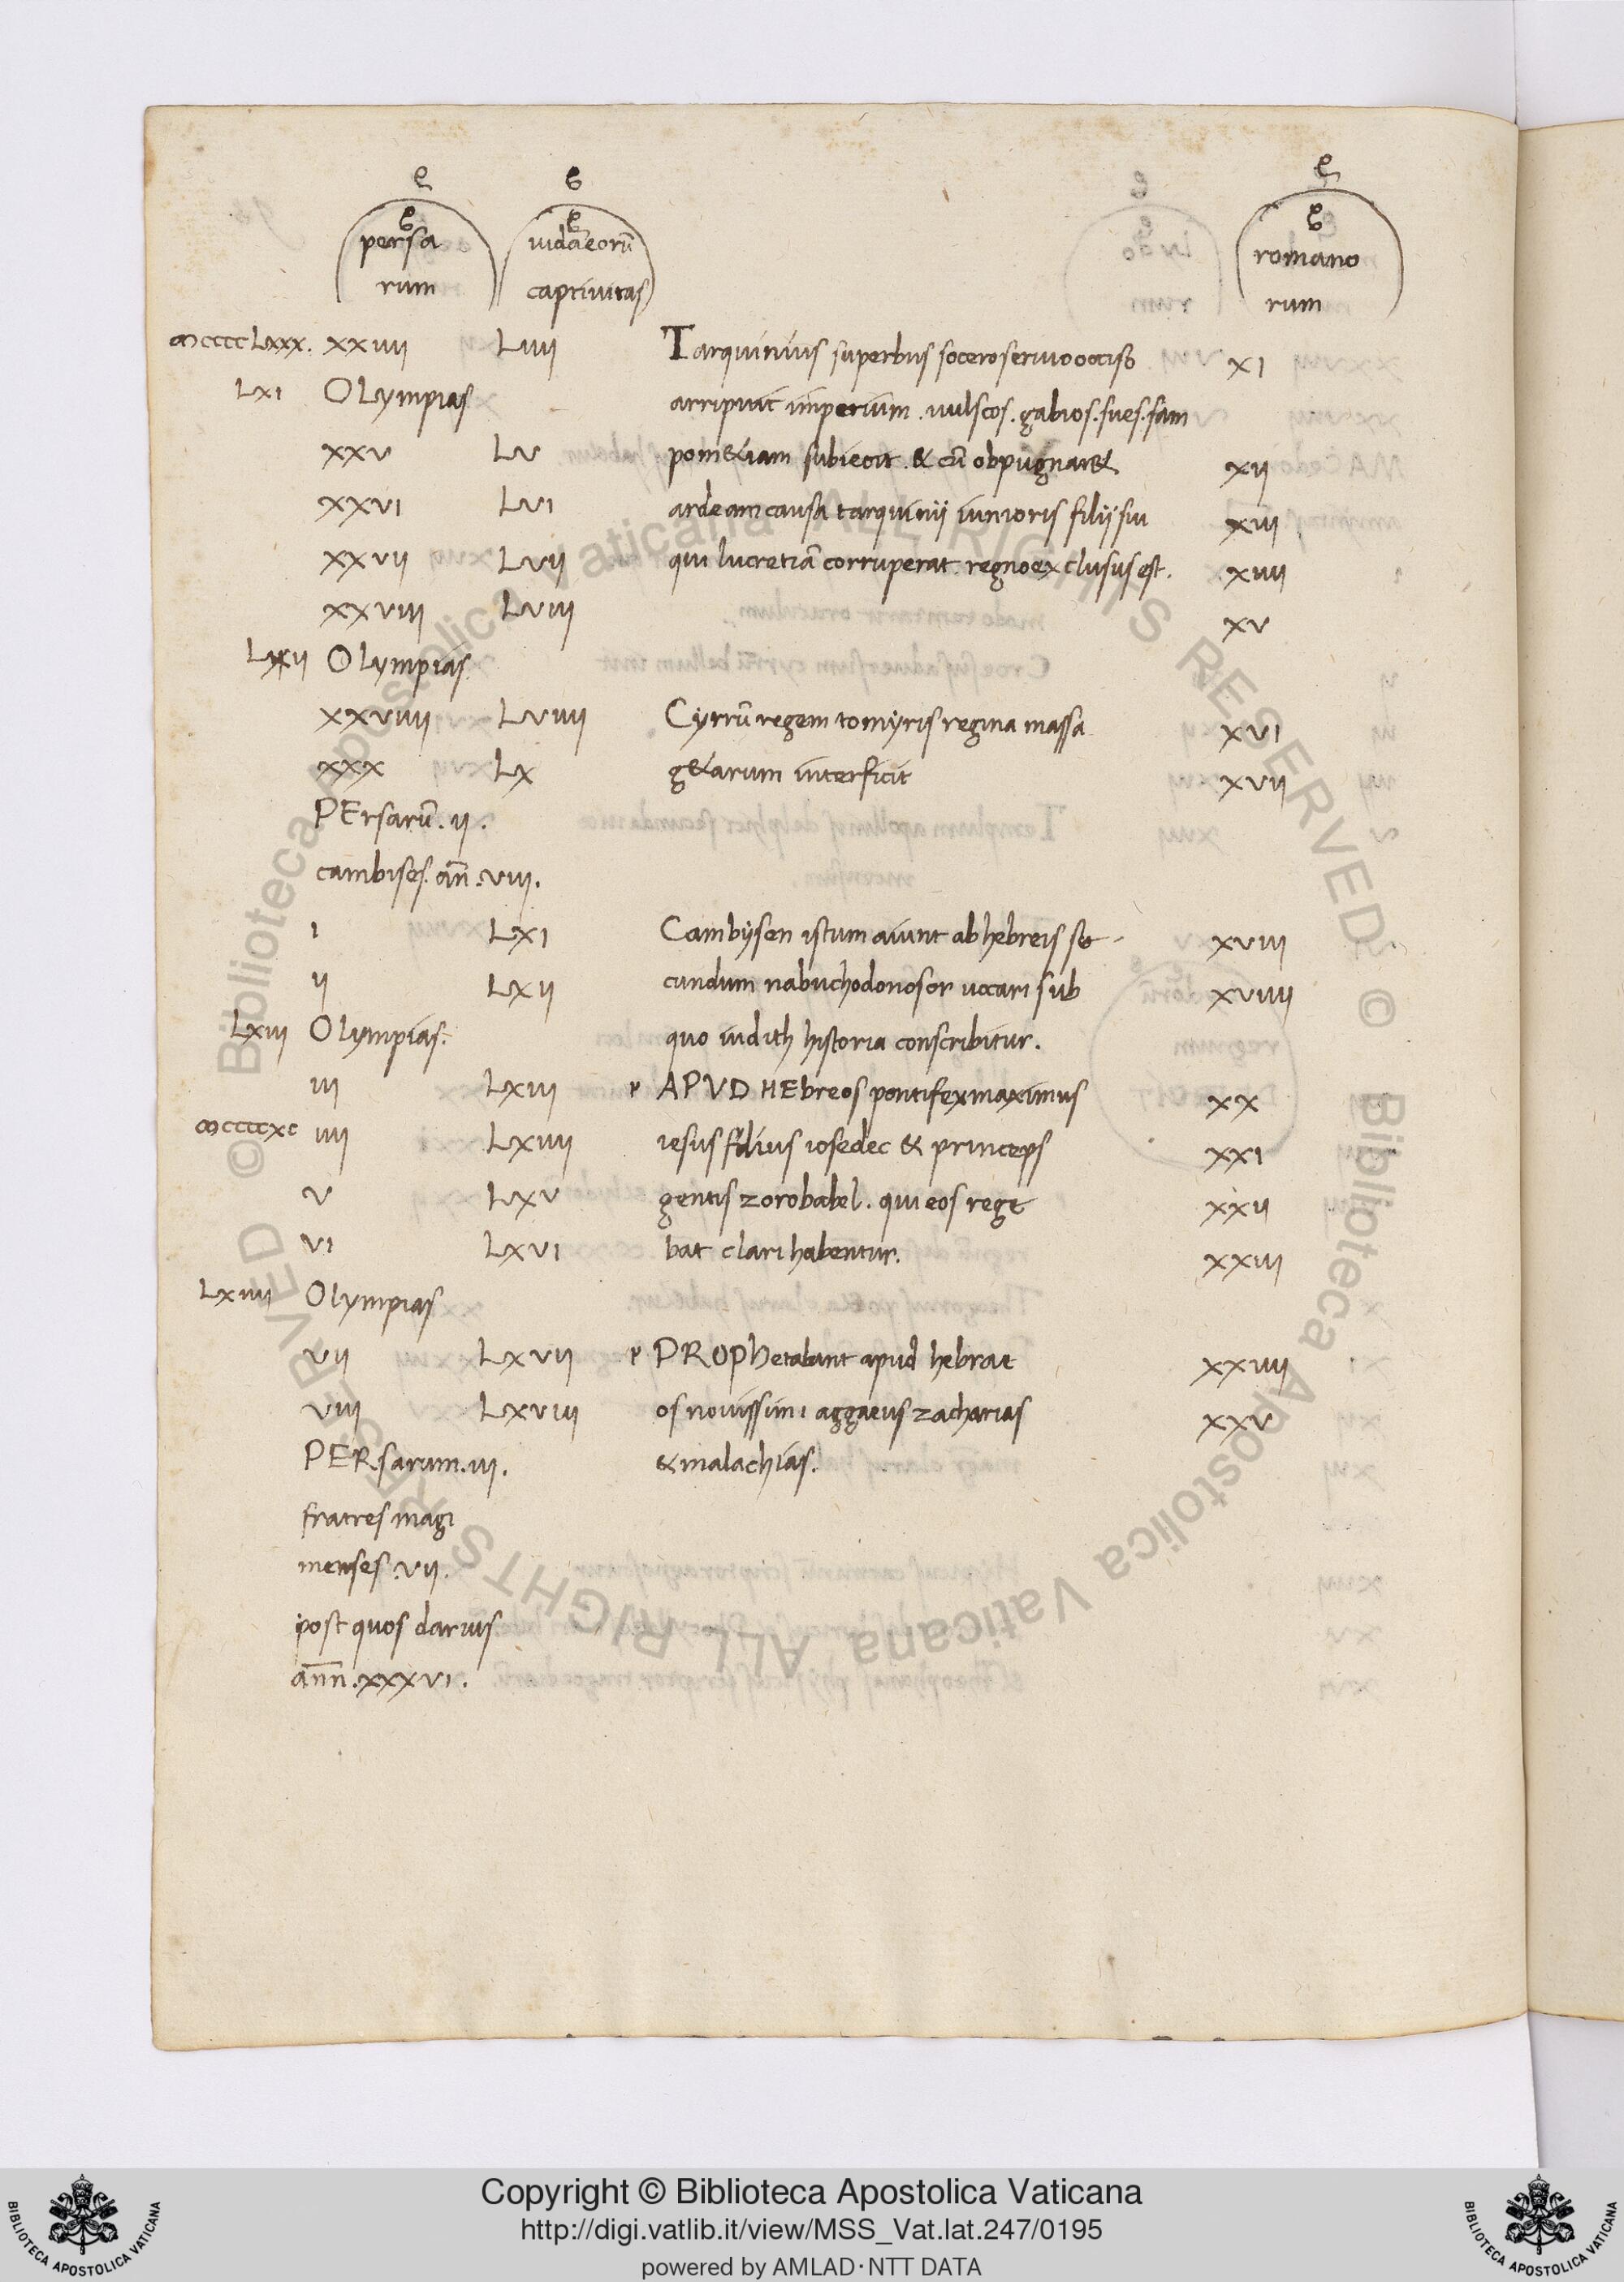 persa
rum
iudaeorū
captiuitas
romano
rum
ꝏccccLxxx. xxiiii Liiii Tarquinius superbus socero seruio occiso xi
Lxi OLympias arripuit imperium. uulscos. gabios. sues. sam
xxv Lv pom&iam subiecit. & cū obpugnar& xii
xxvi Lvi ardeam causa tarquinij iunioris filij sui xiii
xxvii Lvii qui lucretiā corruperat. regno exclusus est. xiiii
xxviii Lviii xv
Lxii OLympias
xxviiii Lviiii Cyrrū regem tomyris regina massa xvi
xxx Lx g&arum interficit xvii
PErsarū. ii.
cambises. añ. viii.
i Lxi Cambysen istum aiunt ab hebreis se- xviii
ii Lxii cundum nabuchodonosor uocari sub xviiii
Lxiii Olympias. quo iudith historia conscribitur.
iii Lxiii APVD HEbreos pontifex maximus xx
ꝏccccxc iiii Lxiiii iesus filius iosedec & princeps xxi
v Lxv gentis zorobabel. qui eos rege xxii
vi Lxvi bat clari habentur. xxiii
Lxiiii Olympias
vii Lxvii PROPhetabant apud hebrae xxiiii
viii Lxviii os nouissimi aggaeus zacharias xxv
PERsarum. iii. & malachias.
fratres magi
menses. vii.
post quos darius
anñ. xxxvi.
© Biblioteca Apostolica Vaticana ALL RIGHTS RESERVED © Biblioteca Apostolica Vaticana ALL RIGHTS RESERVED
Copyright © Biblioteca Apostolica Vaticana
http://digi.vatlib.it/view/MSS_Vat.lat.247/0195
powered by AMLAD·NTT DATA
BIBLIOTECA APOSTOLICA VATICANA
BIBLIOTECA APOSTOLICA VATICANA